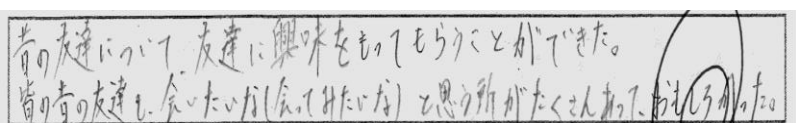 昔の友達について友達に興味をもってもらうことができた。
皆の昔の友達も、会いたいな(会ってみたいな)と思う所がたくさんあって、おもしろかった。